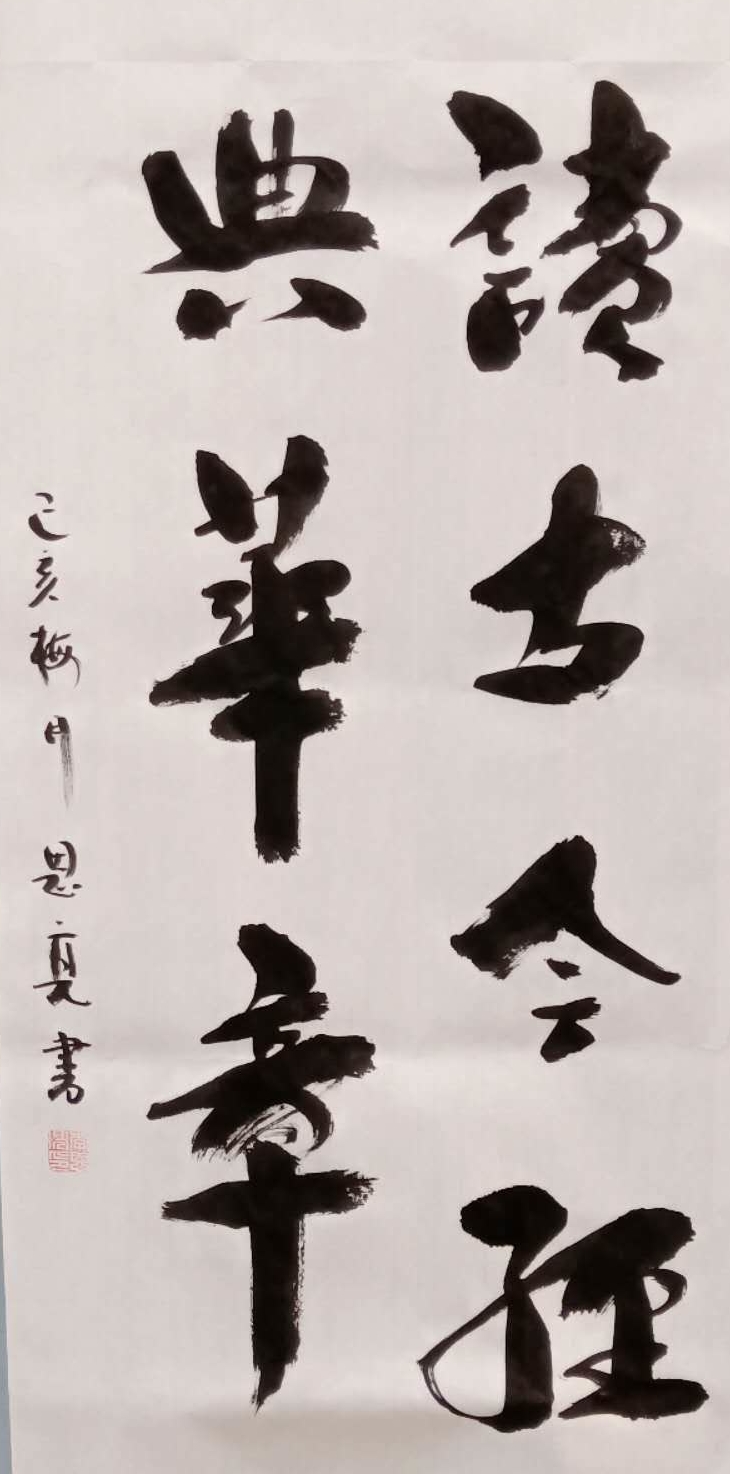 讀古今經
典華章
己亥梅月 思亮書